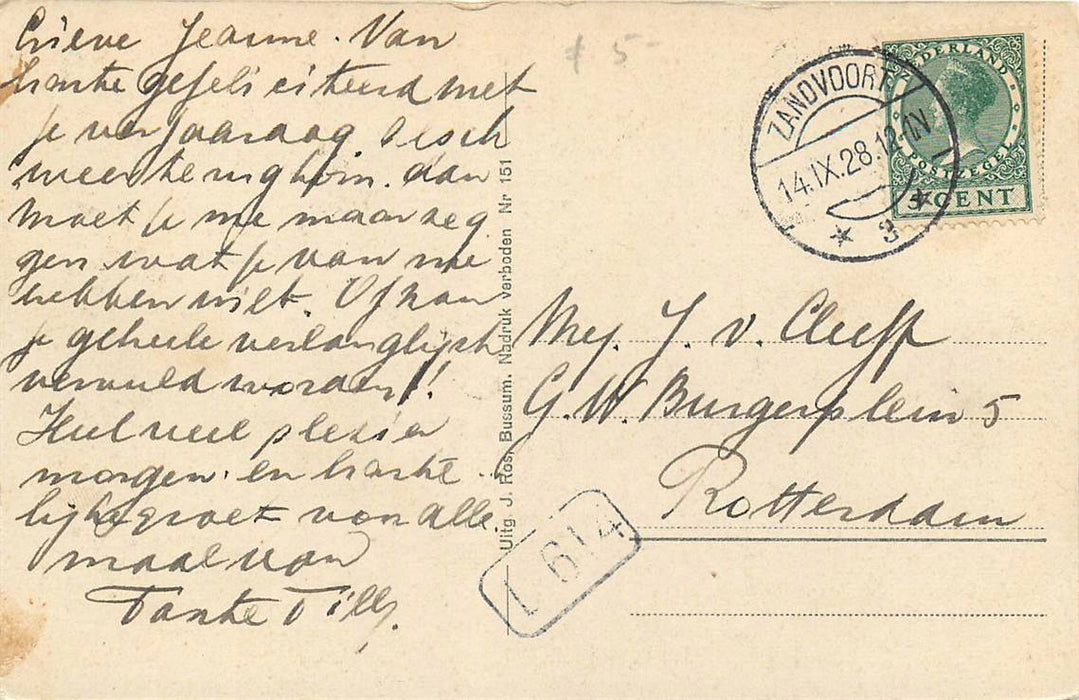 Lieve Jeanne. Van
harte gefeliciteerd met
je verjaardag. Als ik
weer terug kom. dan
moet je me maar zeg
gen wat je van me
hebben wilt. Of kan
je geheele verlanglijst
vervuld worden!!
Heel veel plezier
morgen. en harte
lijke groet van alle
maal van
Tante Tilly.
Uitg J. Ros, Bussum. Nadruk verboden Nr 151
ƒ 5-
ZANDVOORT
14.IX.28.12-1N
* 3 *
NEDERLAND
POSTZEGEL
5 CENT
Mej. J. v. Cleeff
G. W. Burgerplein 5
Rotterdam
L 614